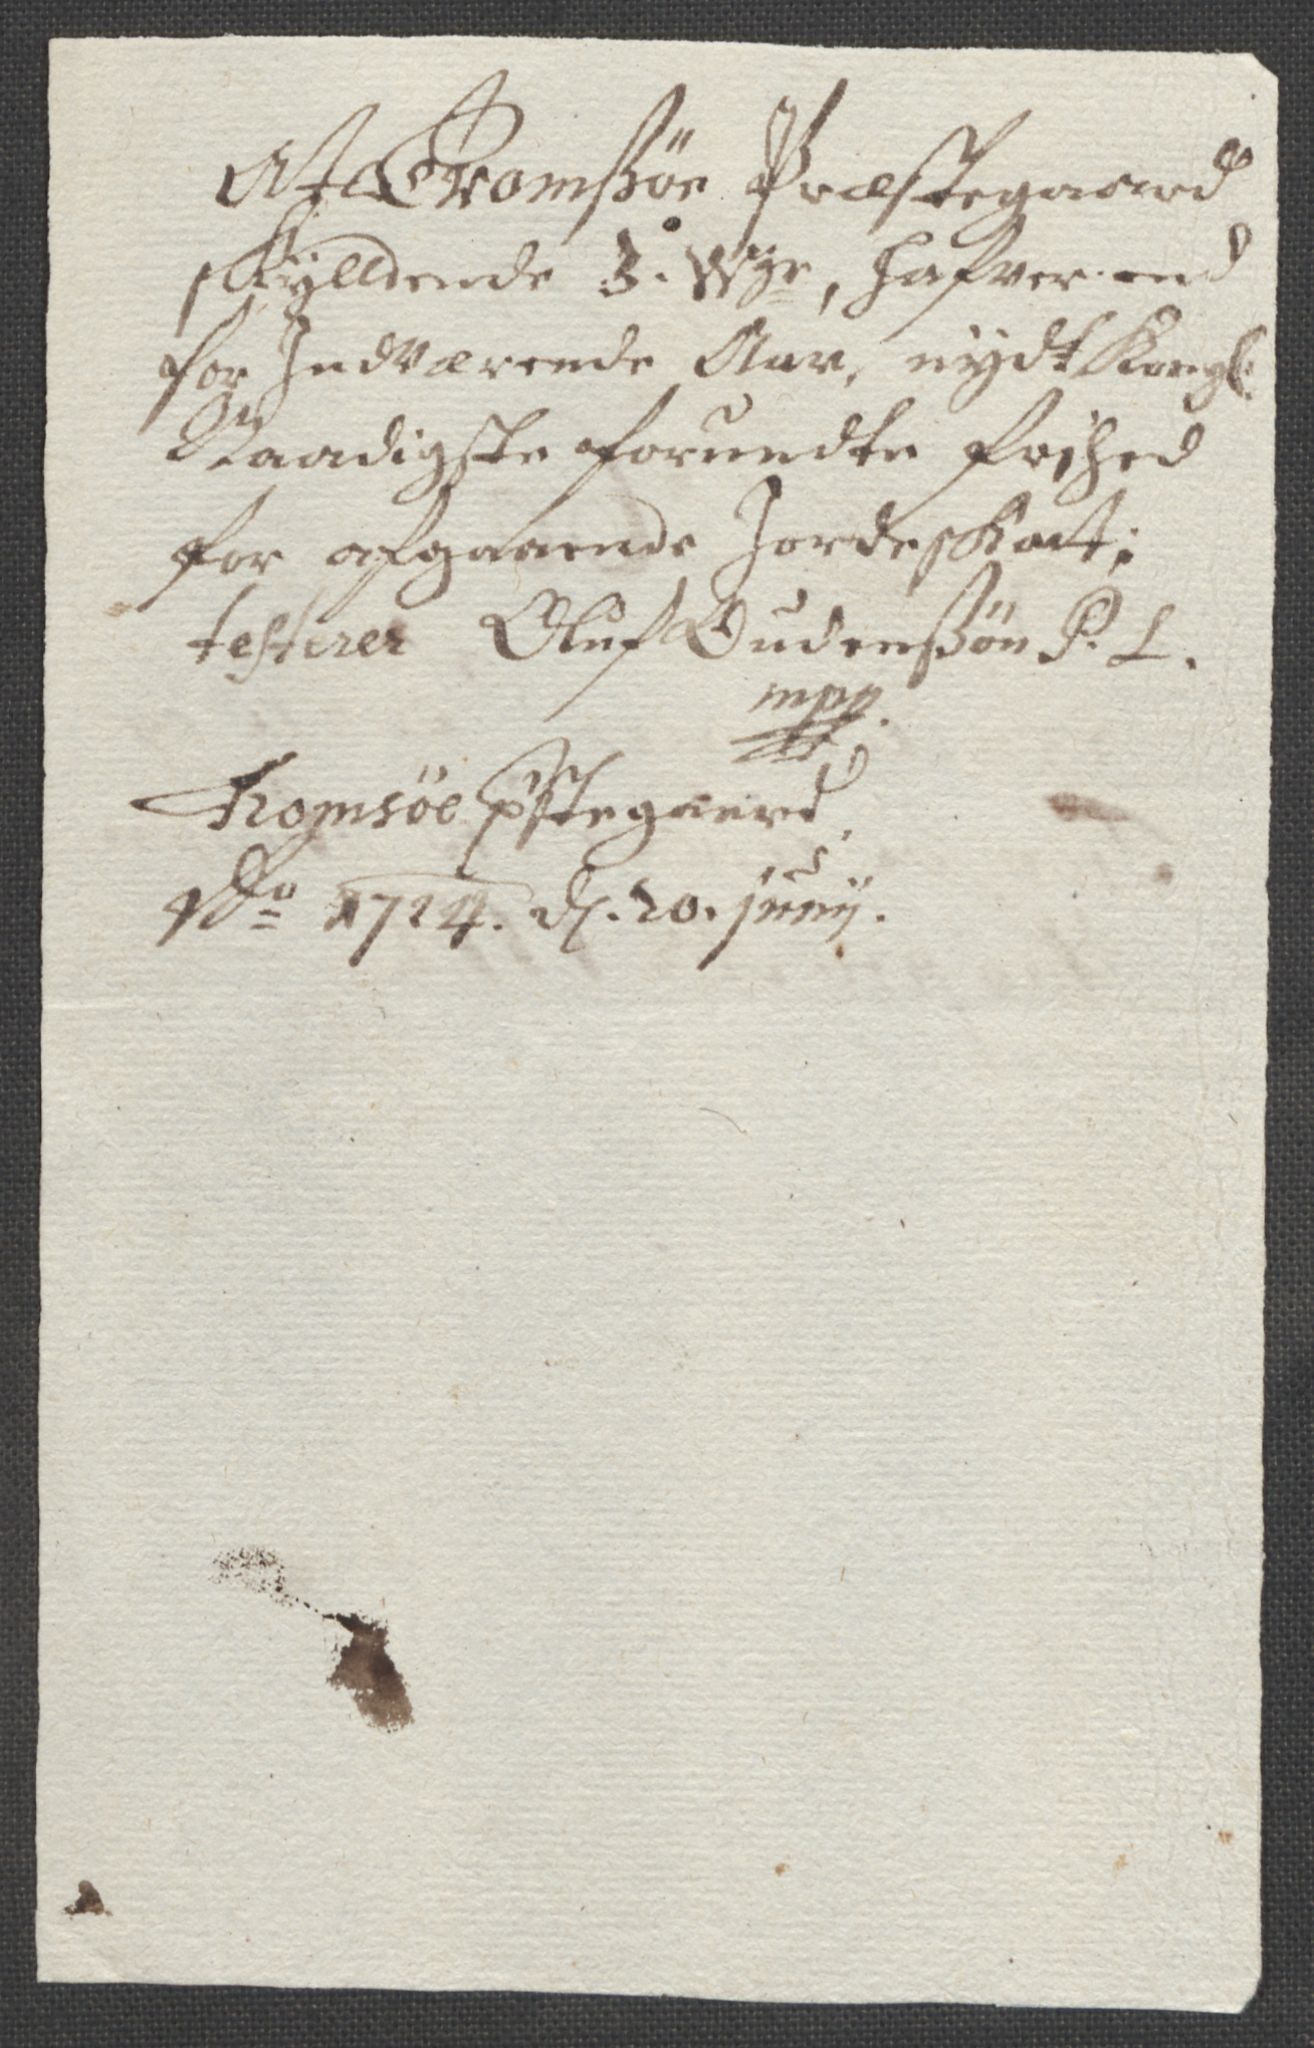 At Tromsøe Præstegaard
skylldende 3. Wgr, hafver end
for Indværende Aar, nydt Kongl:
Naadigste forundte frihed
for afgaaende Jordeskatt;
testerer Oluf Gudenssøn P. L.
mpp.
Tromsøe pstegaard,
Ao 1714. d. 20. junij.